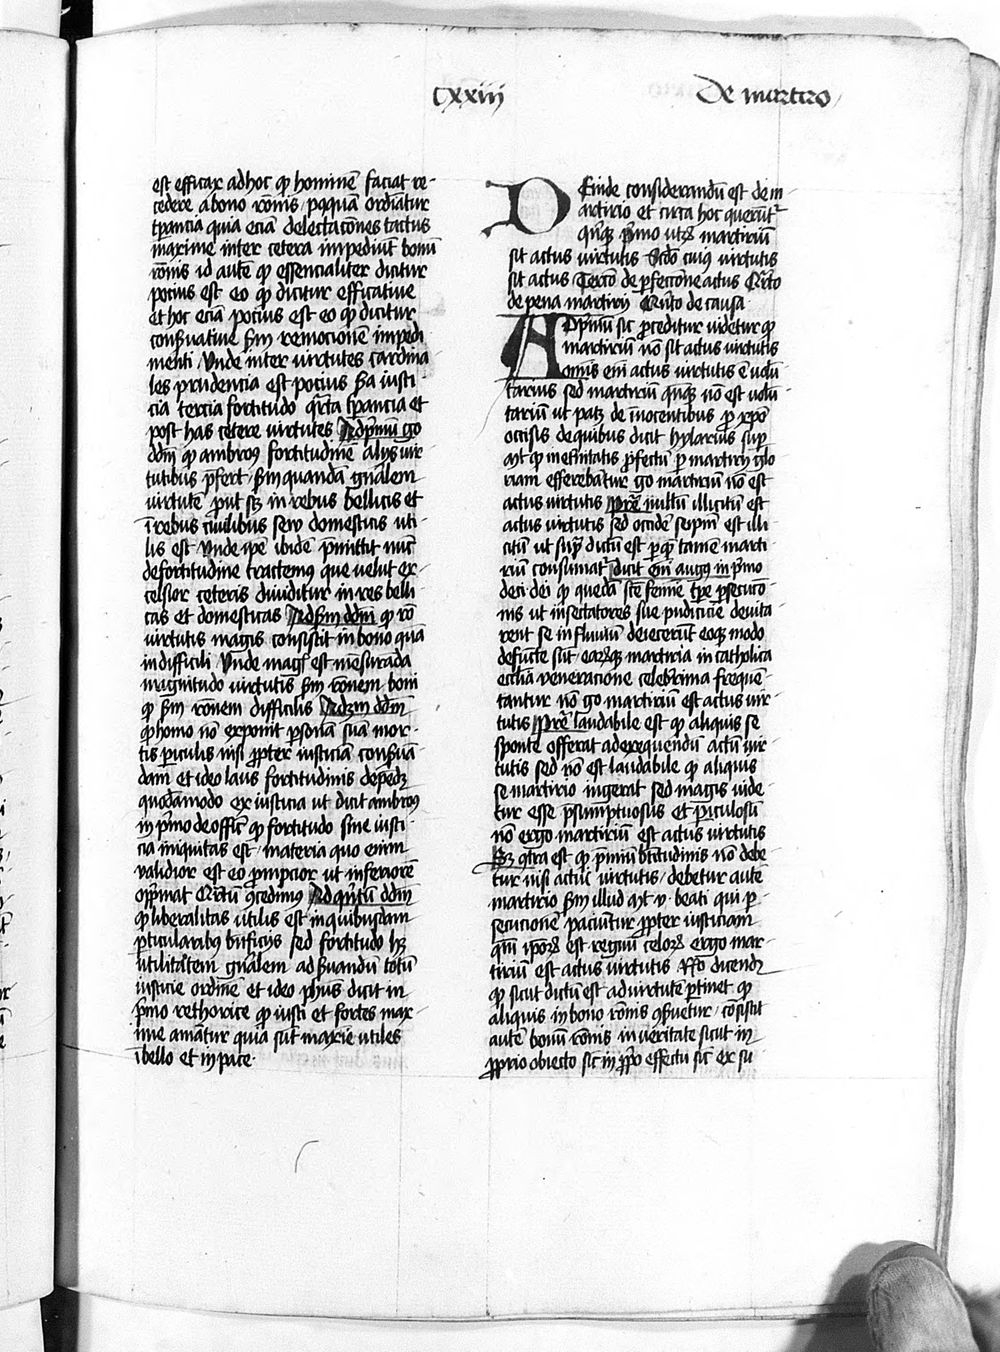 cxxiij
De martirio
est efficax adhoc qꝫ hominē faciat re-
cedere a bono rōnis / pqquā ordiātur
tꝑancia quia eciā delectacōnes tactus
maxime inter cetera impediūt bonū
rōnis id autē qꝫ essencialiter dicitur
pocius est eo qꝫ dicitur efficatiue
et hoc eciā pocius est eo qꝫ dicitur
conſuatiue ẜm remocionē impedi
menti / Vnde inter virtutes cardina
les prudencia est pocius ẜa iusti
cia tercia fortitudo q̄rta tꝑancia et
post has cetere virtutes Adp̄mū go
dd̄m qꝫ ambroꝰ fortitudinē alijs vir
tutibus p̄fert / ẜm quandā gn̄alem
virtutē put sꝫ in rebus bellicis et
ī rebus ciuilibus seu domesticis uti-
lis est Vnde ip̄e ibidē p̄mittit nūc
de fortitudine tractemꝰ que velut ex-
celsior ceteris diuiditur in res belli
cas et domesticas Adẜm dd̄m qꝫ rō
virtutis magis consistit in bono quā
in difficili Vnde magꝭ est mēsurāda
magnitudo virtutis ẜm rōnem boni
qꝫ ẜm rōnem difficilis Adꝫm dd̄m
qꝫ homo nō exponit ꝑsonā suā mor-
tis ꝑiculis nisi ꝓpter iusticiā conẜuā-
dam et ideo laus fortitudinis depēdꝫ
quodāmodo ex iusticia ut dicit ambroꝰ
in p̄mo de officꝭ qꝫ fortitudo sine iusti
cia iniquitas est / materia quo enim
validior est eo prompcior ut inferiorē
opp̄mat Q̄rtū ꝯcedimꝰ Adqn̄tū dd̄m
qꝫ liberalitas utilis est in quibusdam
ꝑticularibꝰ bn̄ficijs sed fortitudo hꝫ
utilitatem gn̄alem adẜuandū totū
iusticie ordinē et ideo phūs dicit in
p̄mo rethorice qꝫ iusti et fortes max-
ime amātur quia sūt maxīe utiles
ī bello et in pace
Deinde considerandū est de m-
artirio et circa hoc querūtᷣ
qn̄qꝫ p̄mo utꝝ martiriū
sit actus virtutis Scd̄o cuiꝰ virtutis
sit actus Tercō de ꝑfeccōne actus Q̄rto
de pena martirij Qn̄to de causa
Adp̄mū sic ꝓceditur videtur qꝫ
martiriū nō sit actus virtutis
omnis em̄ actus virtutis ē volū-
tarius sed martiriū qn̄qꝫ nō est volū-
tariū ut patꝫ de īnocentibus ꝓ xp̄o
occisis de quibus dicit hylarius suꝑ
mt qꝫ in eternitatis ꝓfectū ꝑ martirij glo
riam efferebātur go martiriū nō est
actus virtutis Pret̄ nullū illicitū est
actus virtutis sed occidē seip̄m est illi-
citū ut sup̄ dictū est ꝑ qꝫ tamē marti-
riū consumatᷣ dicit em̄ augꝰ in p̄mo
de ci. dei qꝫ quedā sc̄e femīe tp̄e ꝑsecucō-
nis ut insectatores sue pudicicie deuita
rent se in fluuiū deiecerūt eoqꝫ modo
defuncte sūt / earūqꝫ martiria in catholica
eccl̄ia veneracione celebrima frequē-
tantur nō go martiriū est actus vir-
tutis Pret̄ laudabile est qꝫ aliquis se
sponte offerat ad exequendū actū vir
tutis sed nō est laudabile qꝫ aliquis
se martirio ingerat sed magis vide-
tur esse p̄sumptuosus et ꝑiculosū
nō ergo martiriū est actus virtutis
Sꝫ ꝯtra est qꝫ p̄miū bt̄itudinis nō debe-
tur nisi actui virtutis / debetur autē
martirio ẜm illud mt v. beati qui ꝑ-
secucionē paciūtur ꝓpter iusticiam
qm̄ ip̄oꝝ est regnū celoꝝ ergo mar-
tiriū est actus virtutis Rn̄o dicendꝫ
qꝫ sicut dictū est ad virtutē ꝑtinet qꝫ
aliquis in bono rōnis ꝯẜuetur / cōsistit
autē bonū rōnis in veritate sicut in
ꝓprio obiecto sic in ꝓp̄o effectu sic̄ ex su